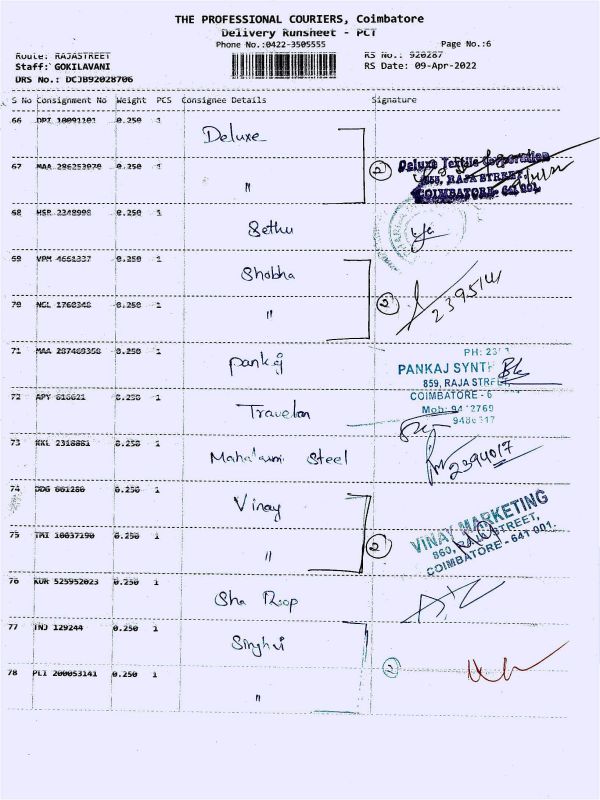 THE PROFESSIONAL COURIERS, Coimbatore
Delivery Runsheet - PCT
Phone No.:0422-3505555 Page No.:6
Route: RAJASTREET RS No.: 920287
Staff: GOKILAVANI RS Date: 09-Apr-2022
DRS No.: DCJB92028706
S No Consignment No Weight PCS Consignee Details Signature
66 DPI 10091101 0.250 1 Deluxe
67 MAA 286253970 0.250 1 " 2
Deluxe Textile Corporation
RAJA STREET,
COIMBATORE- 641 001.
68 HSR 2248998 0.250 1 Sethu
69 VPM 4661337 0.250 1 Shobha
70 NGL 1760348 0.250 1 " 2 2395141
71 MAA 287469358 0.250 1 Pankaj
PH:
PANKAJ SYNTH
859, RAJA STREET
COIMBATORE - 6
72 APY 616621 0.250 1
Mob:
73 KKL 2318881 0.250 1 Steel 2394017
74 DDG 661280 0.250 1 Vinay
75 TMI 10037190 0.250 1 " 2
VINAY MARKETING
860, RAJA STREET,
COIMBATORE - 641 001.
76 KUR 525952023 0.250 1 Sha Roop
77 TNJ 129244 0.250 1 Singhvi
78 PLI 200053141 0.250 1 " 2